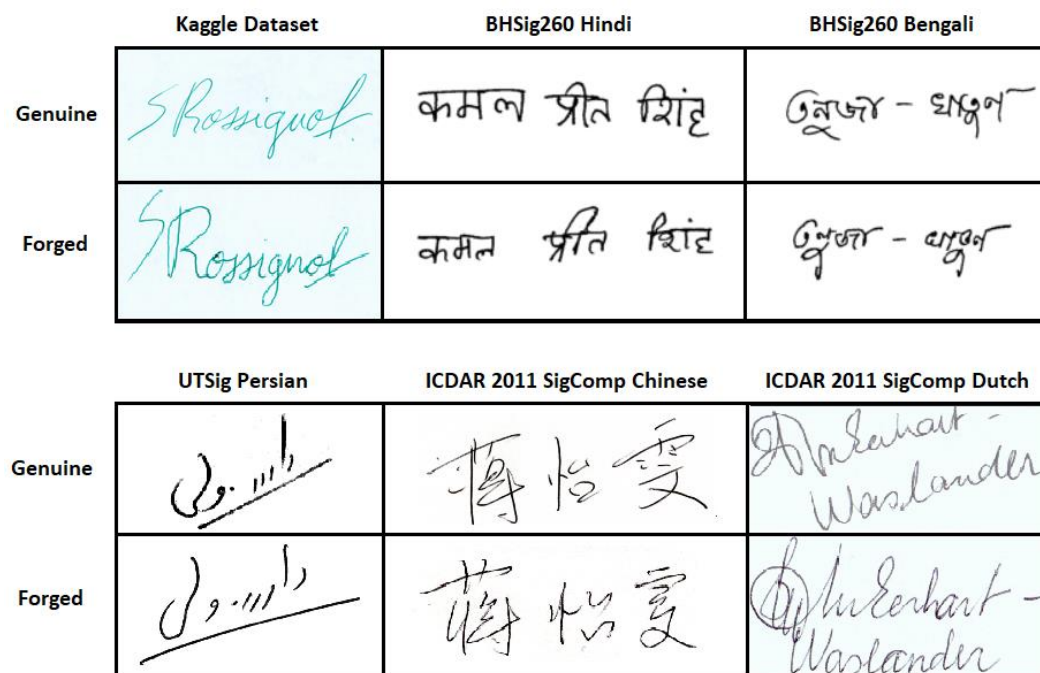 Kaggle Dataset BHSig260 Hindi BHSig260 Bengali
Genuine S Rossignol. कमल प्रीत शिंह তনুজা - খাতুন
Forged S Rossignol कमल प्रीत शिंह তনুজা - খাতুন
UTSig Persian ICDAR 2011 SigComp Chinese ICDAR 2011 SigComp Dutch
Genuine 蒋怡雯 -
Waslander
Forged 蒋怡雯 -
Waslander